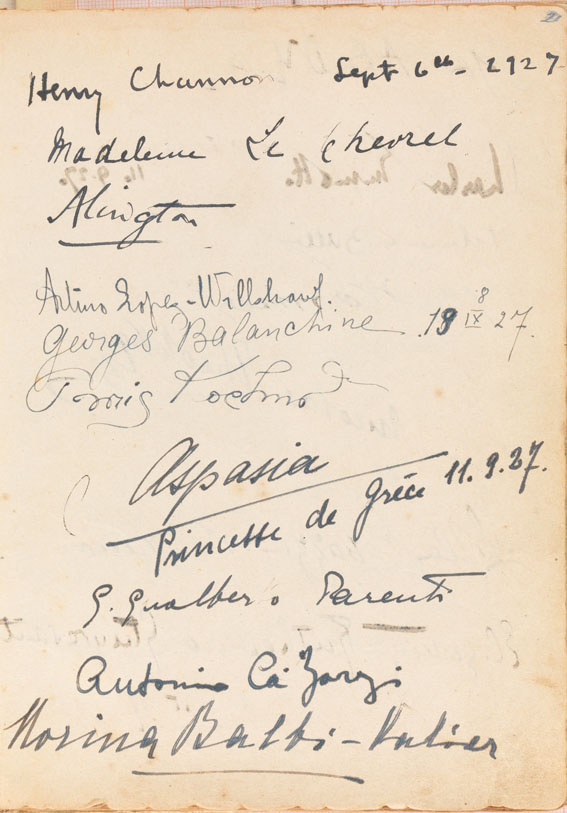 21
Henry Channon Sept 6th - 1927
Madeleine Le Chevrel
Alington
Arturo Lopez-Willshaw.
Georges Balanchine .19 8 IX 27.
Boris Kochno
Aspasia
Princesse de Grèce 11.9.27.
G. Gualberto Parenti
Antonio Cà Zorzi
Morina Balbi-Valier